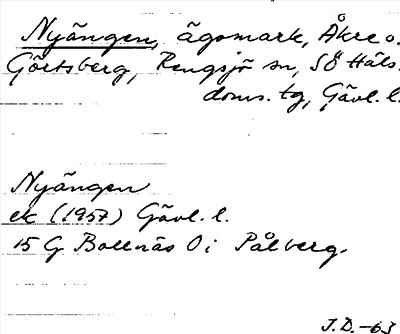 Nyängen, ägomark, Åkre o.
Görtsberg, Rengsjö sn, SÖ Häls.
doms. tg, Gävl. l.
Nyängen
ek (1957) Gävl. l.
15 G Bollnäs Ö i Pålberg.
J.D. -63